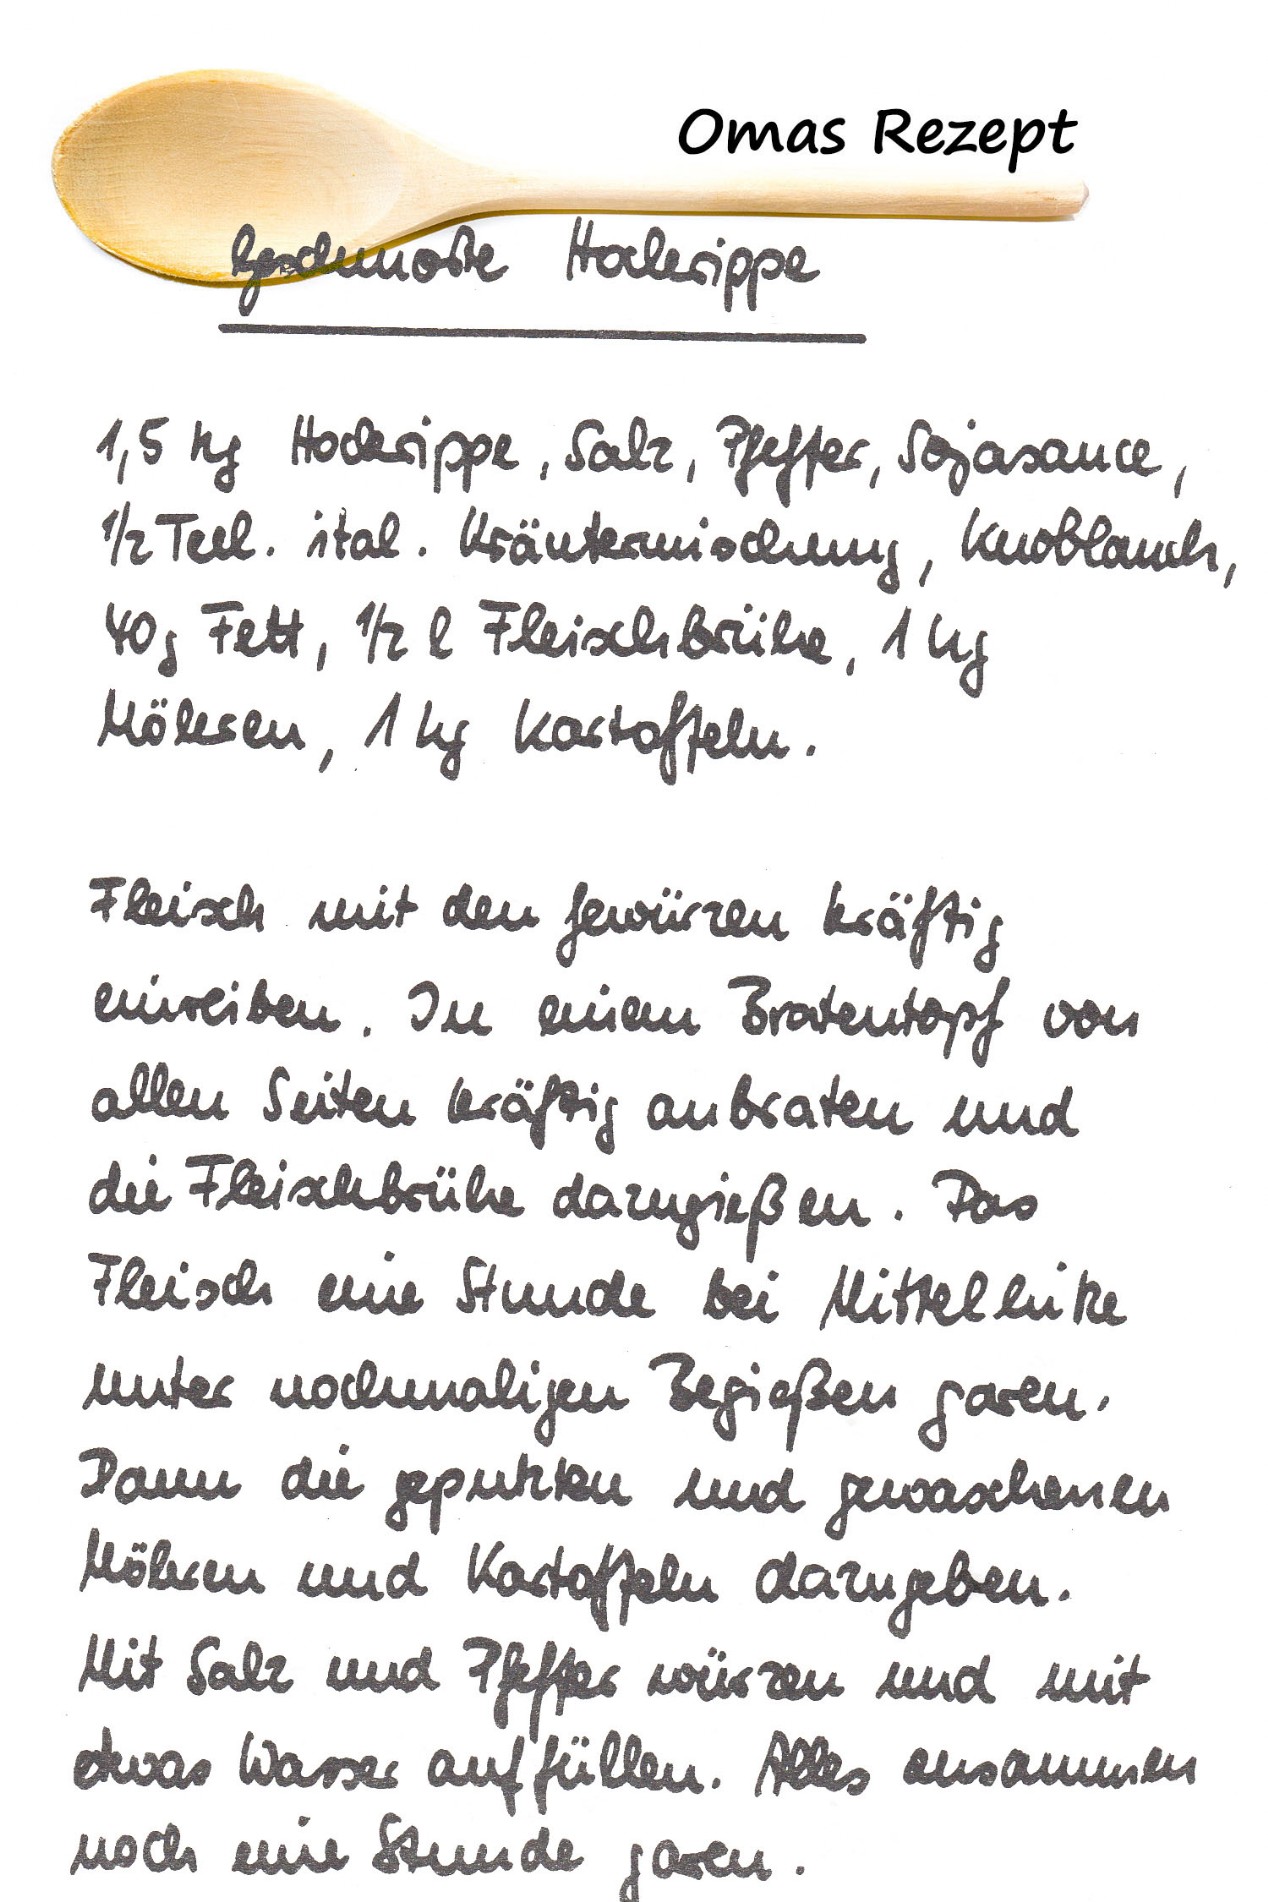 Omas Rezept
Geschmorte Hochrippe
1,5 kg Hochrippe, Salz, Pfeffer, Sojasauce,
1/2 Teel. ital. Kräutermischung, Knoblauch,
40g Fett, 1/2 l Fleischbrühe, 1 kg
Möhren, 1 kg Kartoffeln.
Fleisch mit den Gewürzen kräftig
einreiben. In einem Bratentopf von
allen Seiten kräftig anbraten und
die Fleischbrühe dazugießen. Das
Fleisch eine Stunde bei Mittelhitze
unter nochmaligen Begießen garen.
Dann die geputzten und gewaschenen
Möhren und Kartoffeln dazugeben.
Mit Salz und Pfeffer würzen und mit
etwas Wasser auffüllen. Alles zusammen
noch eine Stunde garen.